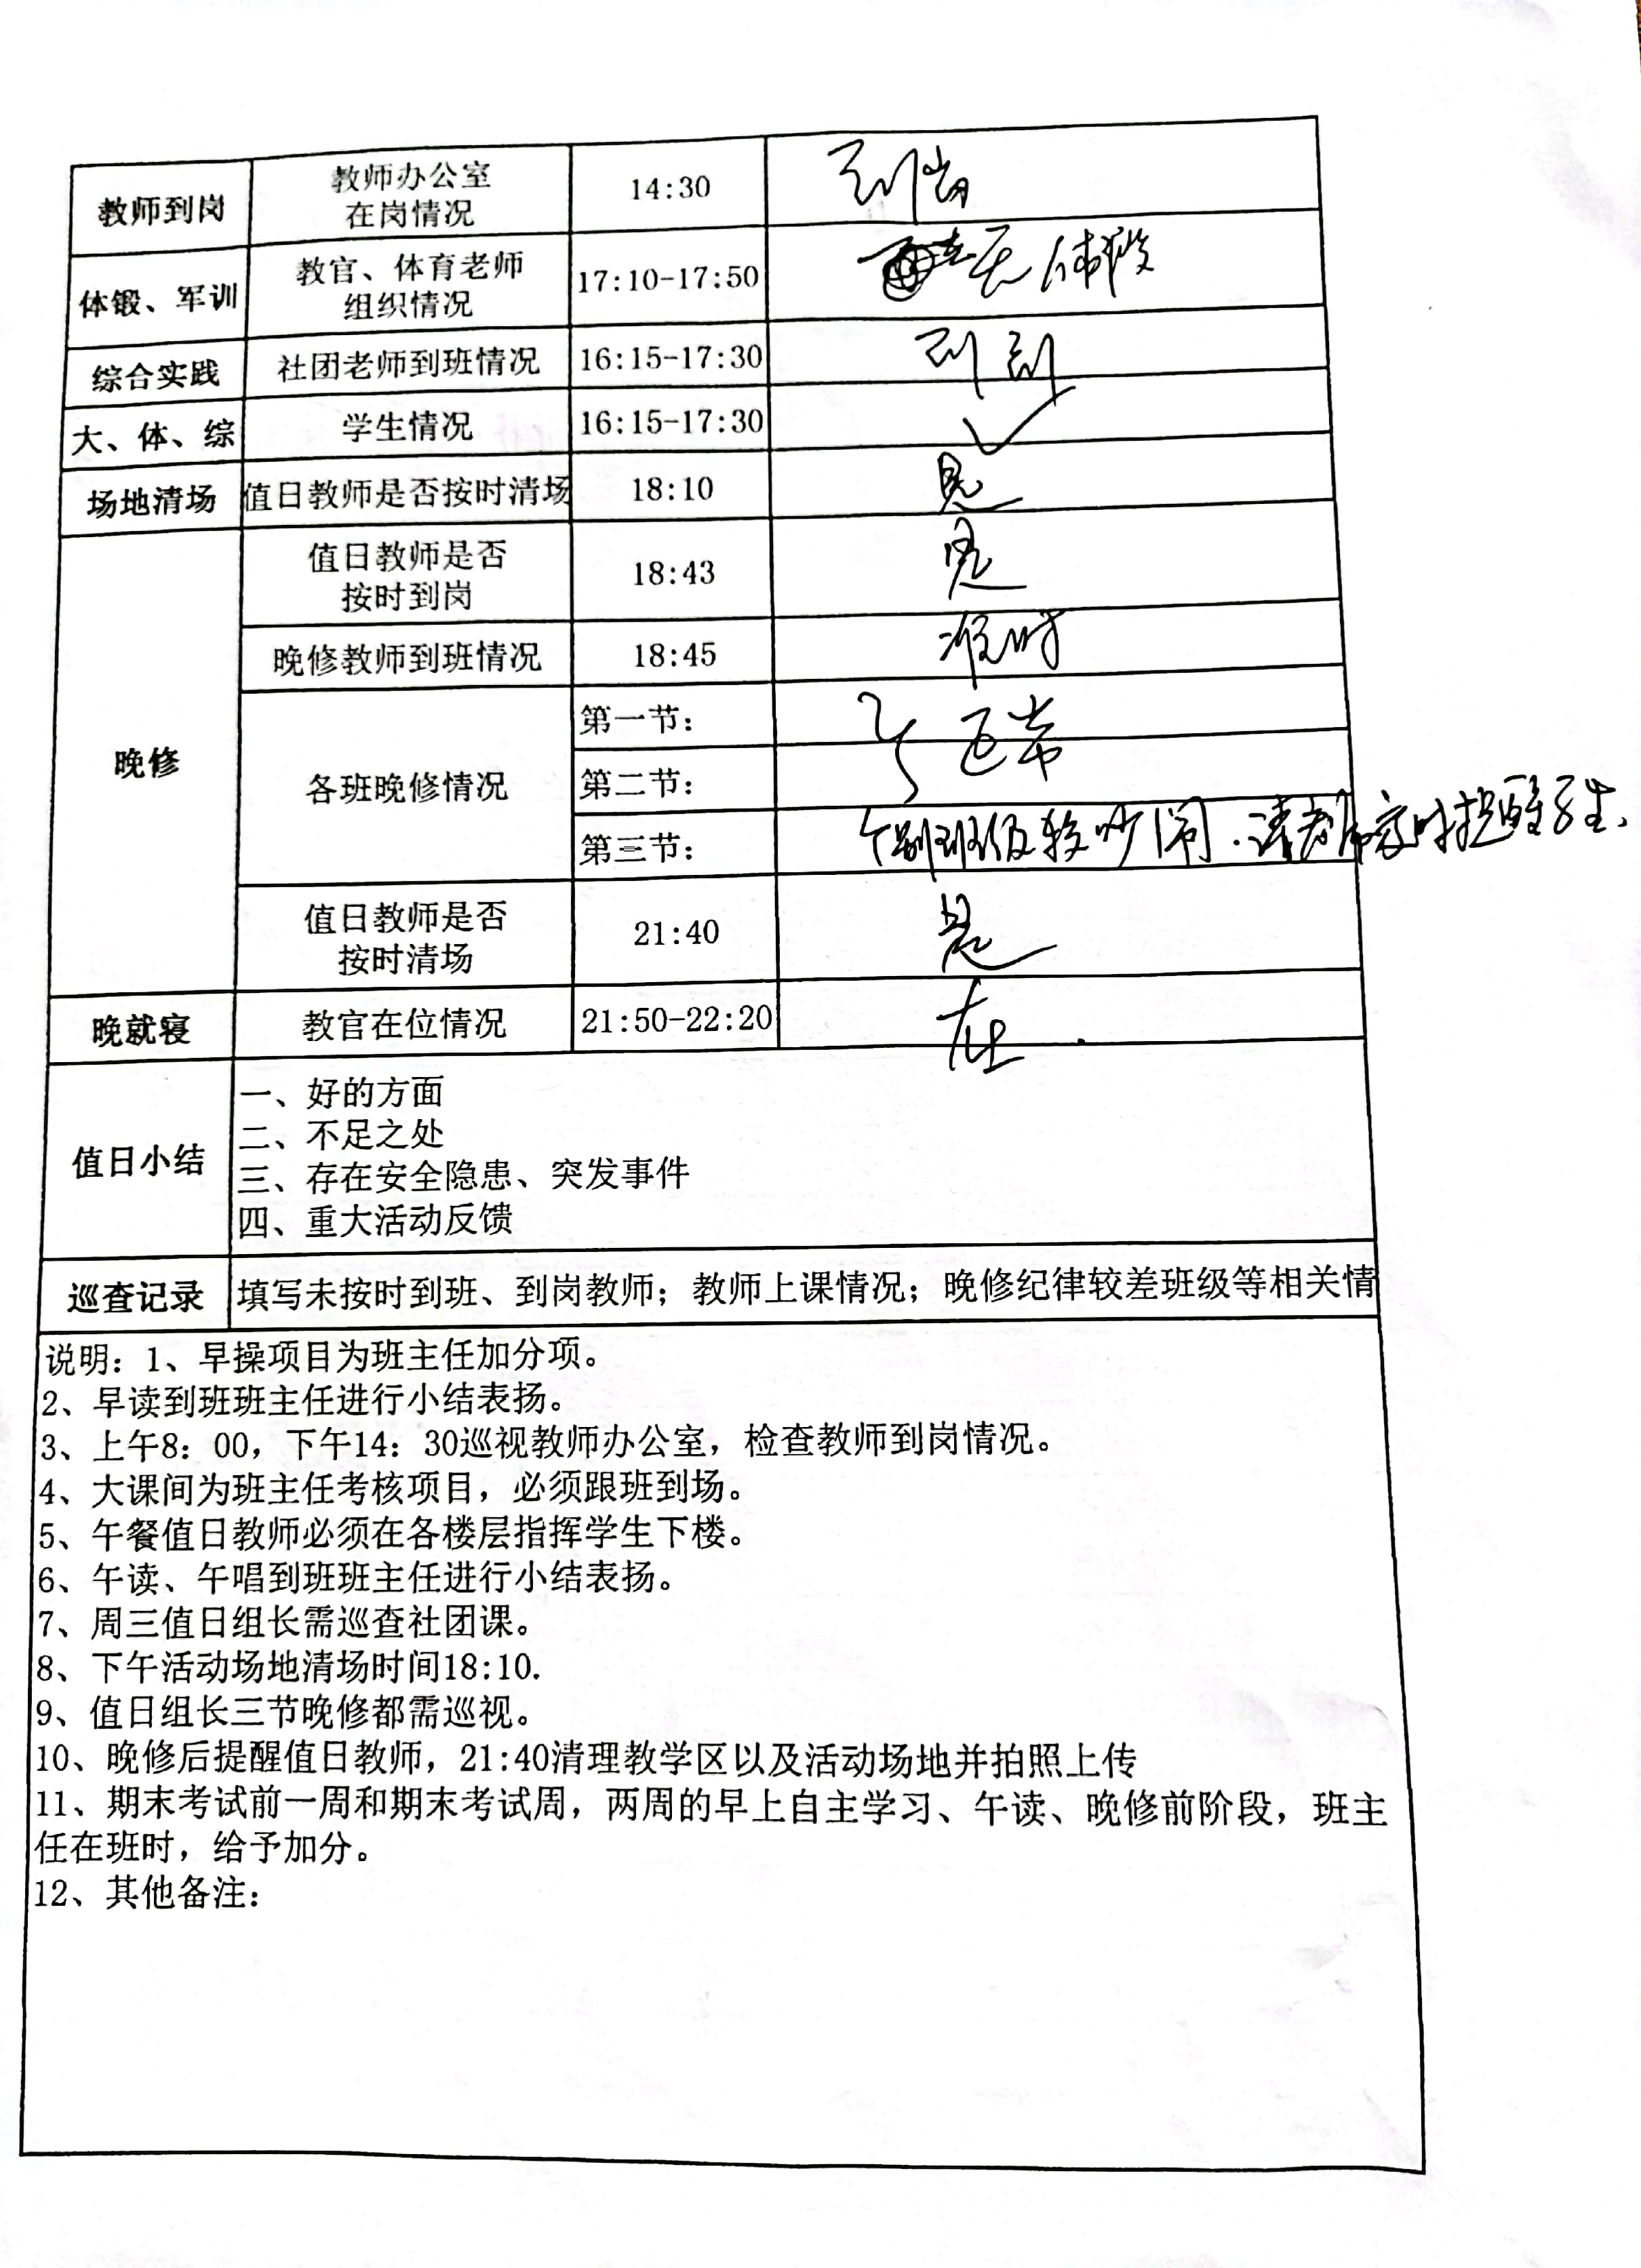 教师到岗 教师办公室 14:30 到岗
在岗情况
体锻、军训 教官、体育老师 17:10-17:50 无体锻
组织情况
综合实践 社团老师到班情况 16:15-17:30 到到
大、体、综 学生情况 16:15-17:30 ✓
场地清场 值日教师是否按时清场 18:10 是
晚修 值日教师是否 18:43 是
按时到岗
晚修教师到班情况 18:45 准时
各班晚修情况 第一节: 正常
第二节:
第三节: 个别班级较吵闹.请老师及时提醒学生、
值日教师是否 21:40 是
按时清场
晚就寝 教官在位情况 21:50-22:20 在.
值日小结
一、好的方面
二、不足之处
三、存在安全隐患、突发事件
四、重大活动反馈
巡查记录 填写未按时到班、到岗教师；教师上课情况；晚修纪律较差班级等相关情
说明：1、早操项目为班主任加分项。
2、早读到班班主任进行小结表扬。
3、上午8：00，下午14：30巡视教师办公室，检查教师到岗情况。
4、大课间为班主任考核项目，必须跟班到场。
5、午餐值日教师必须在各楼层指挥学生下楼。
6、午读、午唱到班班主任进行小结表扬。
7、周三值日组长需巡查社团课。
8、下午活动场地清场时间18:10.
9、值日组长三节晚修都需巡视。
10、晚修后提醒值日教师，21:40清理教学区以及活动场地并拍照上传
11、期末考试前一周和期末考试周，两周的早上自主学习、午读、晚修前阶段，班主
任在班时，给予加分。
12、其他备注：